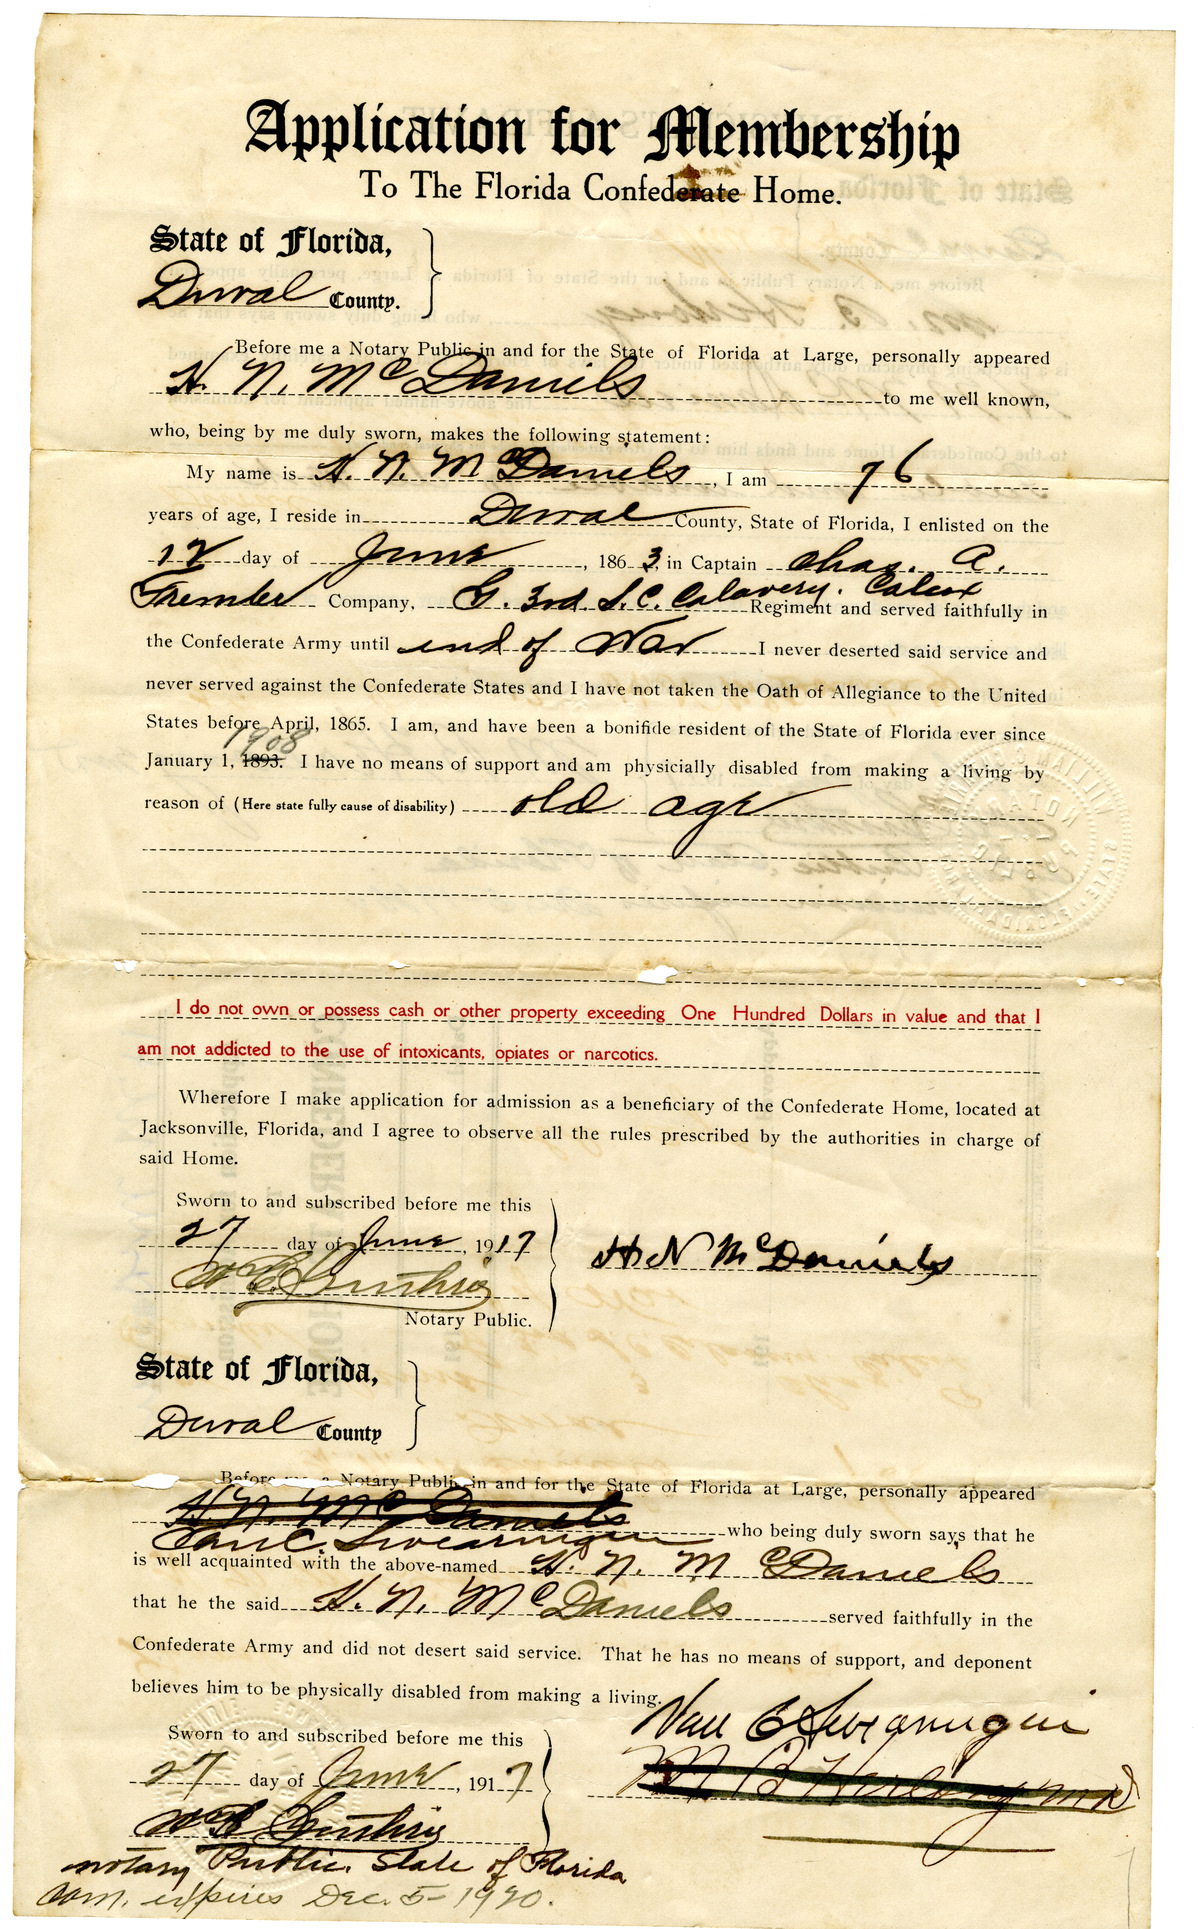 Application for Membership
To The Florida Confederate Home.
State of Florida,
Duval County.
Before me a Notary Public in and for the State of Florida at Large, personally appeared
H. N. McDaniels to me well known,
who, being by me duly sworn, makes the following statement:
My name is H. N. McDaniels, I am 76
years of age, I reside in Duval County, State of Florida, I enlisted on the
12 day of June, 1863, in Captain Chas. A.
Company, G. 3rd S. C. Calavery. Regiment and served faithfully in
the Confederate Army until end of War I never deserted said service and
never served against the Confederate States and I have not taken the Oath of Allegiance to the United
States before April, 1865. I am, and have been a bonifide resident of the State of Florida ever since
1908
January 1, 1893. I have no means of support and am physicially disabled from making a living by
reason of (Here state fully cause of disability) old age
I do not own or possess cash or other property exceeding One Hundred Dollars in value and that I
am not addicted to the use of intoxicants, opiates or narcotics.
Wherefore I make application for admission as a beneficiary of the Confederate Home, located at
Jacksonville, Florida, and I agree to observe all the rules prescribed by the authorities in charge of
said Home.
Sworn to and subscribed before me this
27 day of June, 1917
H N McDaniels
W B Guthrie
Notary Public.
State of Florida,
Duval County
Before me a Notary Public in and for the State of Florida at Large, personally appeared
H. N. McDaniels
C. Swearingen who being duly sworn says that he
is well acquainted with the above-named H. N. McDaniels
that he the said H. N. McDaniels served faithfully in the
Confederate Army and did not desert said service. That he has no means of support, and deponent
believes him to be physically disabled from making a living.
Van C Swearingen
Sworn to and subscribed before me this
M B Herlong MD
27 day of June, 1917
W B Guthrie
notary Public. State of Florida
Com. expires Dec. 5-1920.